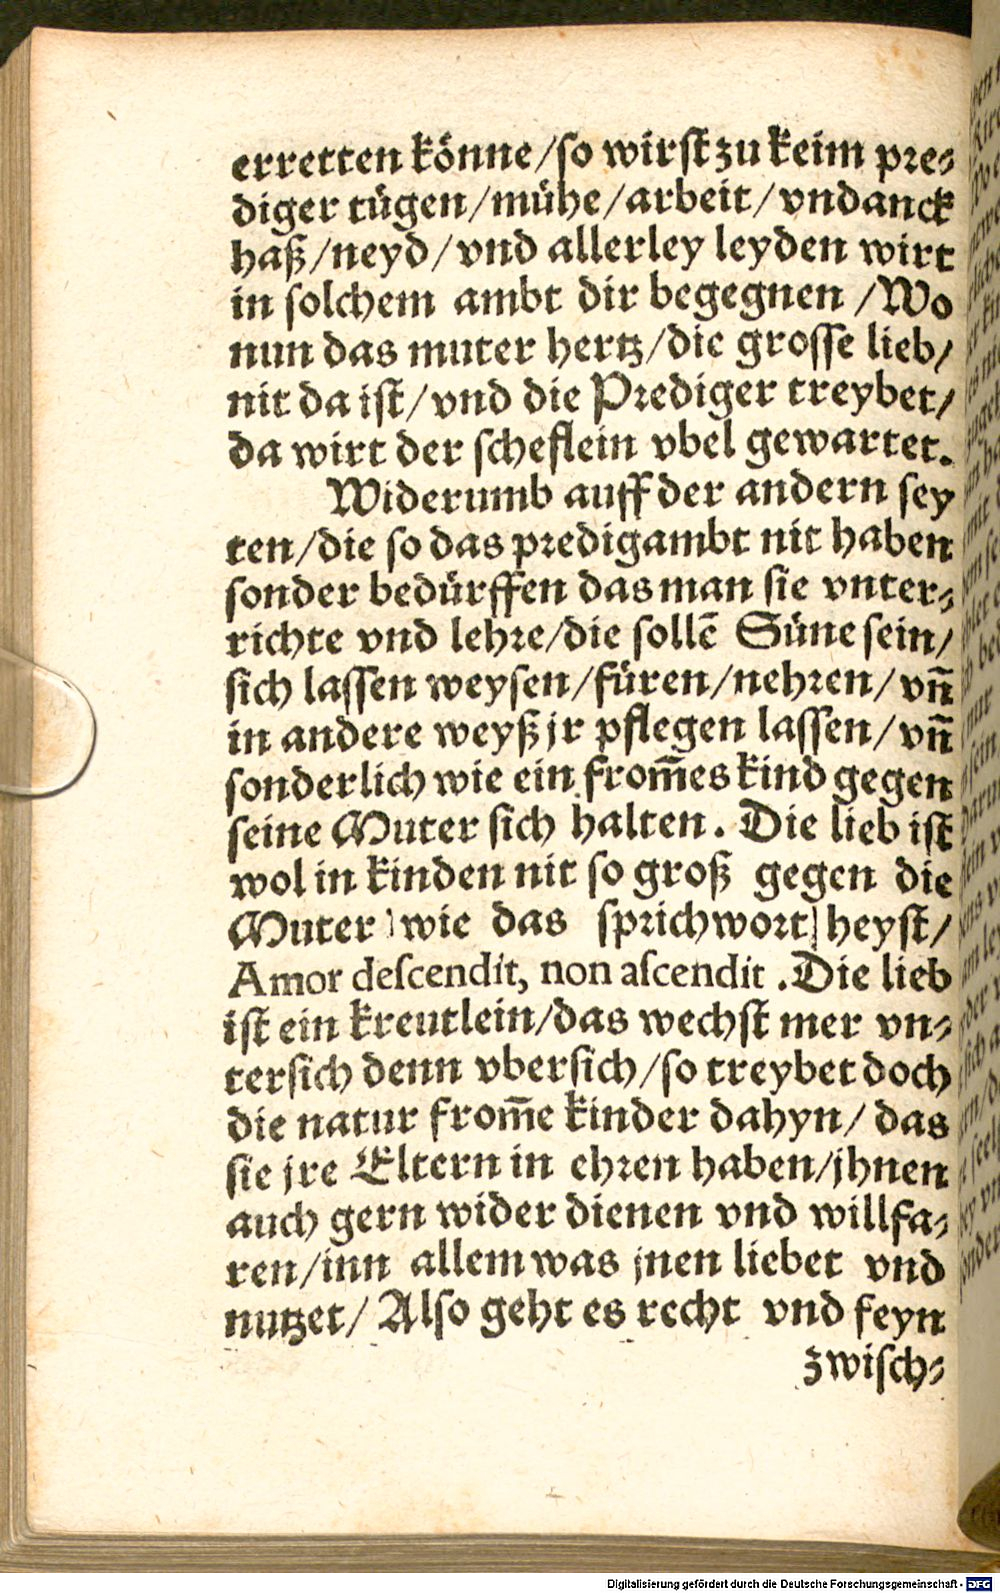 erretten könne/so wirst zu keim pre-
diger tügen/mühe/arbeit/vndanck
haß/neyd/vnd allerley leyden wirt
in solchem ambt dir begegnen /Wo
nun das muter hertz/die grosse lieb/
nit da ist/vnd die Prediger treybet/
da wirt der scheflein vbel gewartet.
Widerumb auff der andern sey
ten/die so das predigambt nit haben
sonder bedürffen das man sie vnter-
richte vnd lehre/die sollē Süne sein/
sich lassen weysen/füren/nehren/vn̄
in andere weyß jr pflegen lassen/vn̄
sonderlich wie ein from̄es kind gegen
seine Muter sich halten. Die lieb ist
wol in kinden nit so groß gegen die
Muter )wie das sprichwort) heyst/
Amor deſcendit, non aſcendit .Die lieb
ist ein kreutlein/das wechst mer vn-
tersich denn vbersich/so treybet doch
die natur from̄e kinder dahyn/ das
sie jre Eltern in ehren haben/jhnen
auch gern wider dienen vnd willfa-
ren/inn allem was jnen liebet vnd
nutzet/ Also geht es recht vnd feyn
zwisch-
Digitalisierung gefördert durch die Deutsche Forschungsgemeinschaft - DFG